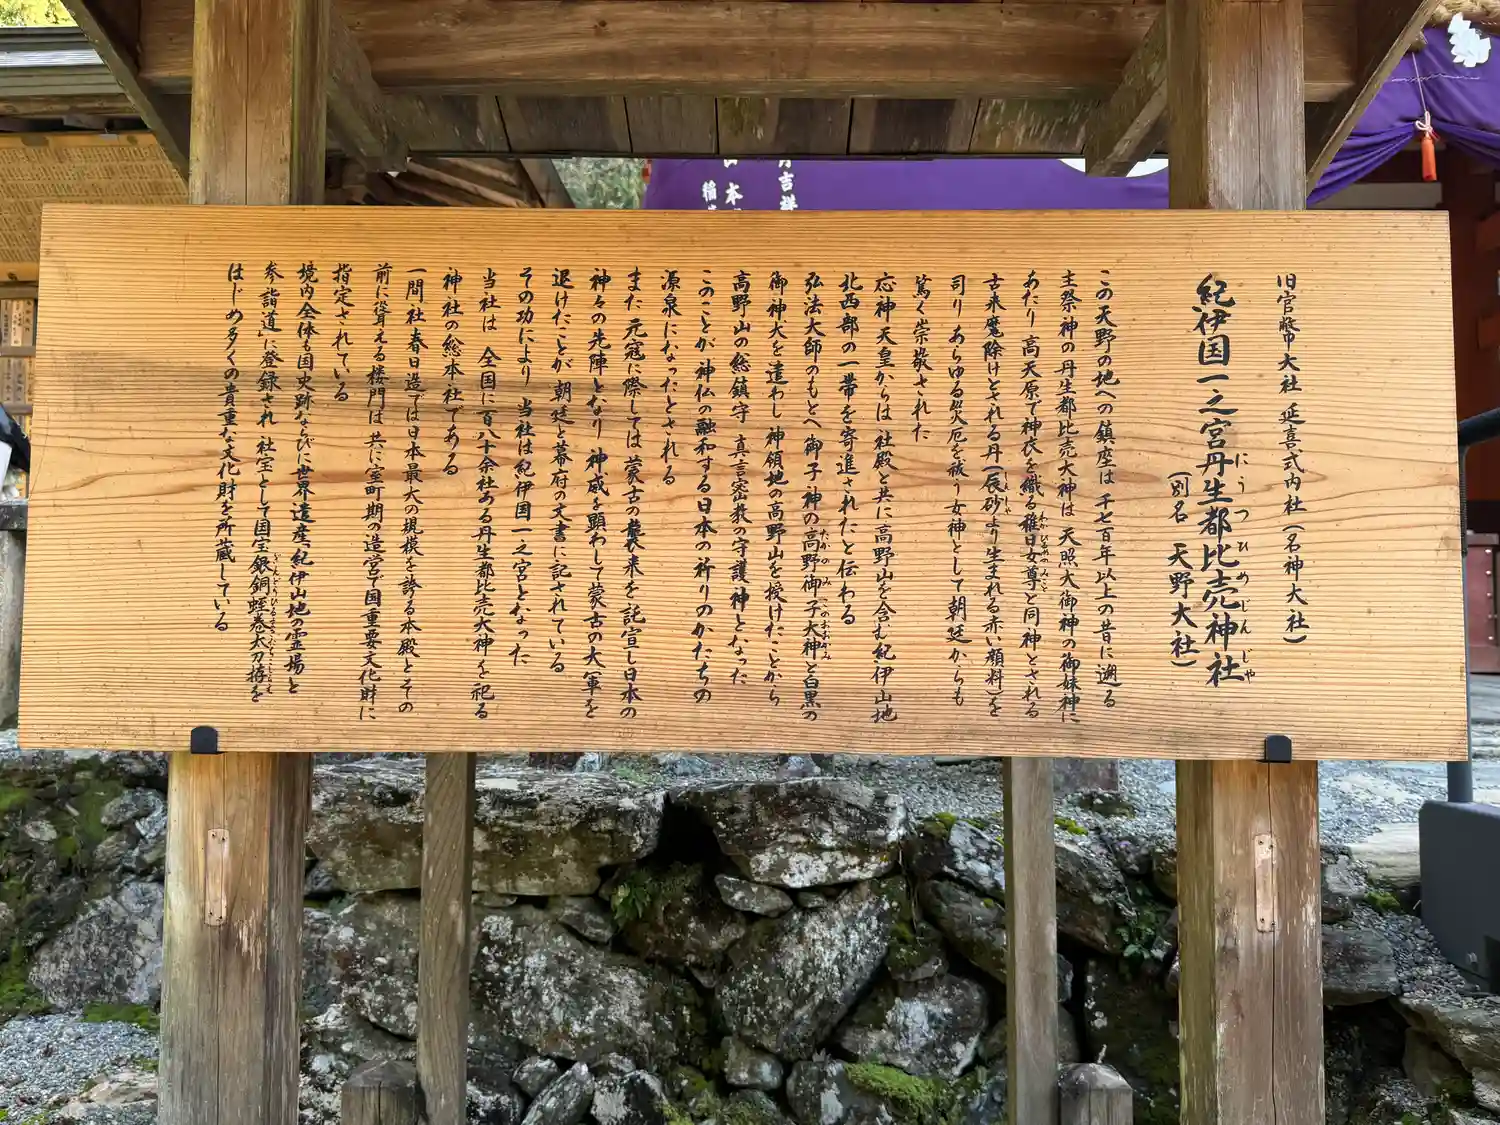 旧官幣大社 延喜式内社(名神大社)
紀伊国一之宮丹生都比売神社
にうつひめじんじゃ
(別名 天野大社)
この天野の地への鎮座は 千七百年以上の昔に遡る
主祭神の丹生都比売大神は 天照大御神の御妹神に
あたり 高天原で神衣を織る稚日女尊と同神とされる
わかひるめのみこと
古来魔除けとされる丹(辰砂より生まれる赤い顔料)を
しんしゃ
司り あらゆる災厄を祓う女神として朝廷からも
篤く崇敬された
応神天皇からは 社殿と共に高野山を含む紀伊山地
北西部の一帯を寄進されたと伝わる
弘法大師のもとへ御子神の高野御子大神と白黒の
たかのみこのおおかみ
御神犬を遣わし 神領地の高野山を授けたことから
高野山の総鎮守 真言密教の守護神となった
このことが 神仏の融和する日本の祈りのかたちの
源泉になったとされる
また 元寇に際しては 蒙古の襲来を託宣し日本の
神々の先陣となり 神威を顕わして蒙古の大軍を
退けたことが 朝廷と幕府の文書に記されている
その功により 当社は紀伊国一之宮となった
当社は 全国に百八十余社ある丹生都比売大神を祀る
神社の総本社である
一間社春日造では日本最大の規模を誇る本殿とその
前に聳える楼門は 共に室町期の造営で国重要文化財に
指定されている
境内全体も国史跡ならびに世界遺産「紀伊山地の霊場と
参詣道」に登録され 社宝として国宝銀銅蛭巻太刀拵を
はじめ多くの貴重な文化財を所蔵している